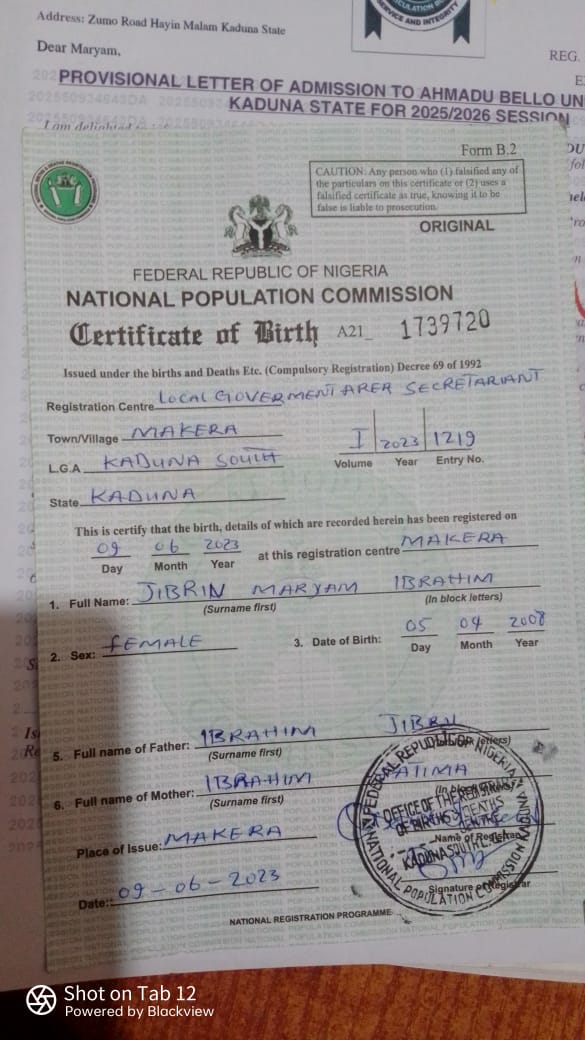 Address: Zumo Road Hayin Malam Kaduna State
SERVICE AND INTEGRITY
Dear Maryam,
REG.
PROVISIONAL LETTER OF ADMISSION TO AHMADU BELLO UN
KADUNA STATE FOR 2025/2026 SESSION
I am delighted
Form B.2
CAUTION: Any person who (1) falsified any of
the particulars on this certificate or (2) uses a
falsified certificate as true, knowing it to be
false is liable to prosecution.
ORIGINAL
FEDERAL REPUBLIC OF NIGERIA
NATIONAL POPULATION COMMISSION
Certificate of Birth A21_ 1739720
Issued under the births and Deaths Etc. (Compulsory Registration) Decree 69 of 1992
Registration Centre LOCAL GOVERMENT AREA SECRETARIANT
Town/Village MAKERA
I 2023 1219
Volume Year Entry No.
L.G.A KADUNA SOUTH
State KADUNA
This is certify that the birth, details of which are recorded herein has been registered on
09 06 2023 at this registration centre MAKERA
Day Month Year
1. Full Name: JIBRIN MARYAM IBRAHIM
(Surname first) (In block letters)
2. Sex: FEMALE 3. Date of Birth: 05 04 2008
Day Month Year
5. Full name of Father: IBRAHIM
(Surname first)
6. Full name of Mother: IBRAHIM FATIMA
(Surname first)
FEDERAL REPUBLIC OF NIGERIA
OFFICE OF THE REGISTRAR
OF BIRTHS DEATHS
KADUNA SOUTH
NATIONAL POPULATION COMMISSION
Name of Registrar
Place of Issue: MAKERA
Signature of Registrar
Date:: 09-06-2023
NATIONAL REGISTRATION PROGRAMME
Shot on Tab 12
Powered by Blackview